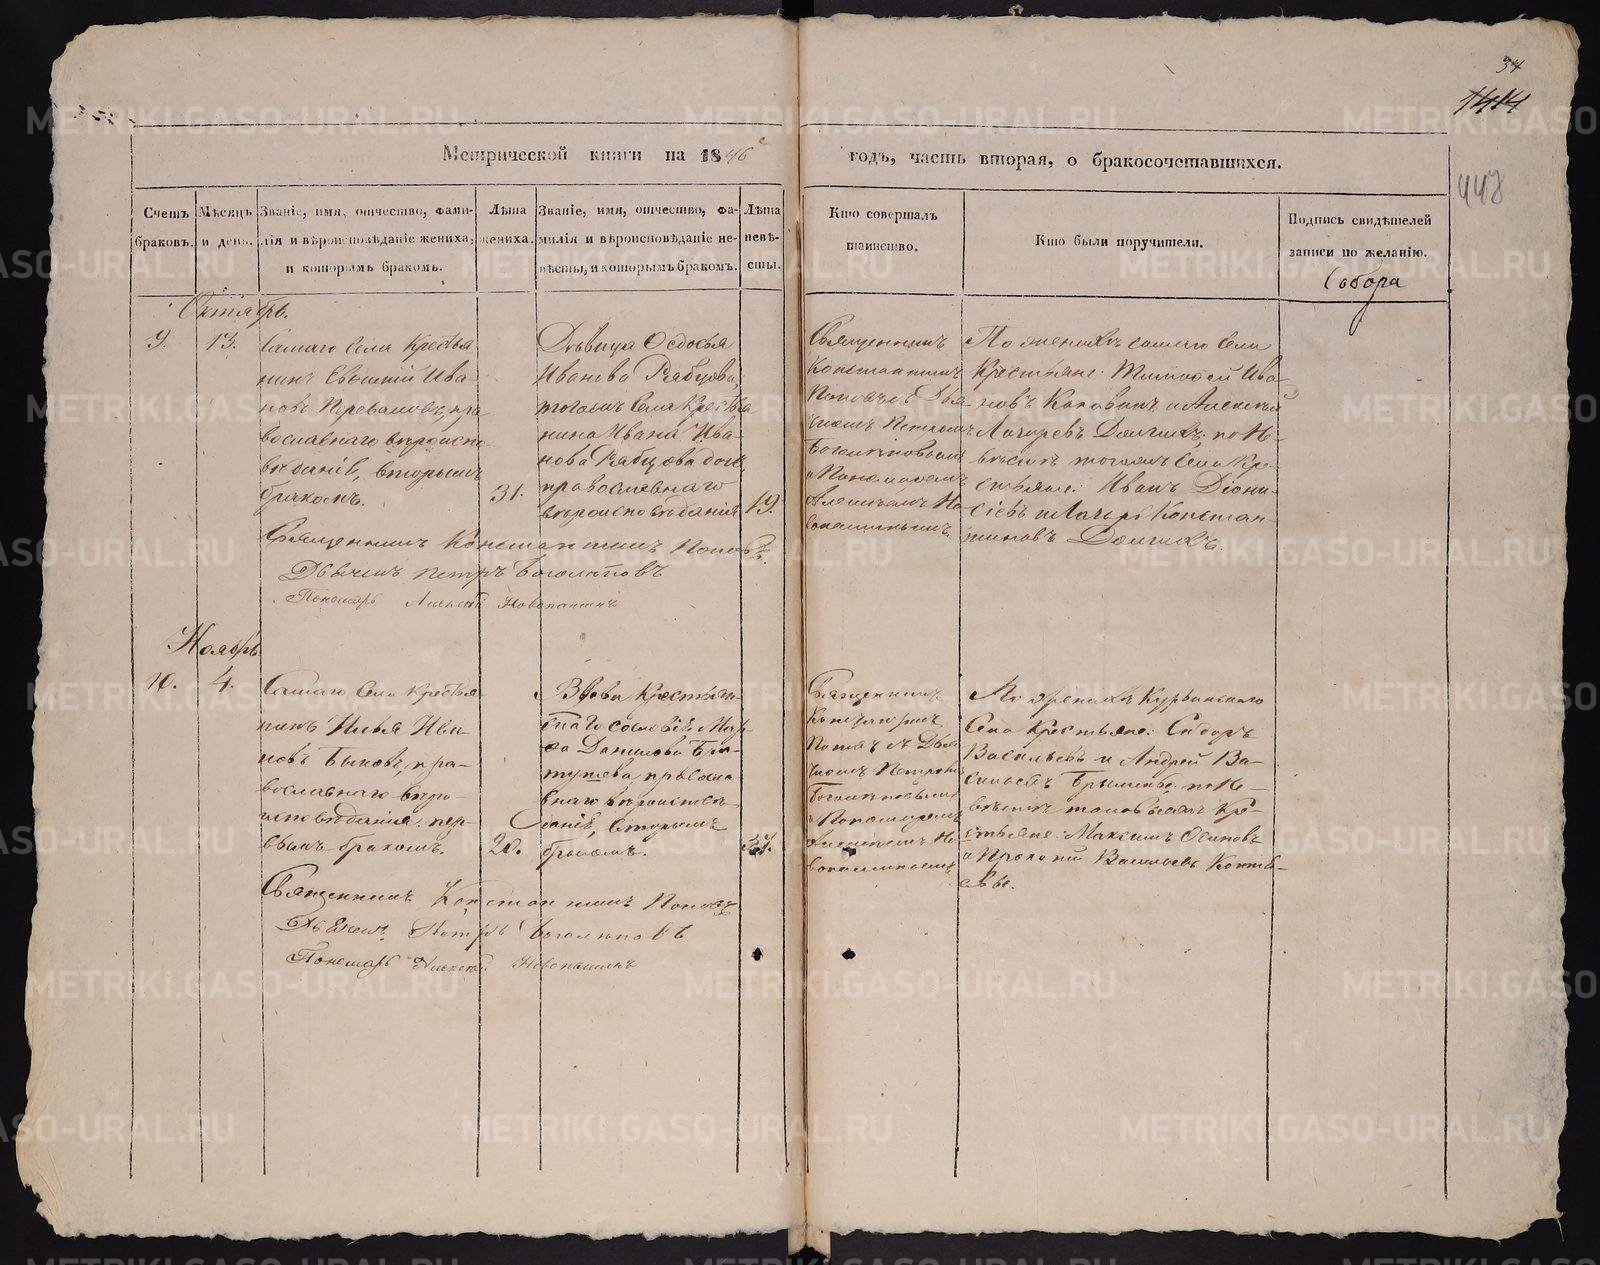 34
1414
447
Метрической книги на 1846 годъ, часть вторая, о бракосочетавшихся.
Счетъ браковъ.
Мѣсяцъ и день.
Званіе, имя, отчество, фами-
лія и вѣроисповѣданіе жениха,
и которымъ бракомъ.
Лѣта
жениха.
Званіе, имя, отчество, фа-
милія и вѣроисповѣданіе не-
вѣсты, и которымъ бракомъ.
Лѣта
невѣ-
сты.
Кто совершалъ
таинство.
Кто были поручители.
Подпись свидѣтелей
записи по желанію.
Собора
Октябрь.
9.
13.
Самаго Села Крестья
нинъ Евѳимій Ива
новъ пра
вославнаго вѣроиспо
вѣданія, вторымъ
бракомъ.
31.
Дѣвица Ѳедосья
Иванова Рябцова,
тогожъ Села Крестья
нина Ивана Ива
нова Рябцова дочь,
православнаго
вѣроисповѣданія
19.
Священникъ
Константинъ
Поповъ съ Дья
чкомъ Петромъ
Боголѣповымъ
и Пономаремъ
Алексѣемъ Но
вопашинымъ.
По женихѣ самаго Села
Крестьяне: Тимофей Ива
новъ и Алексѣй
Лазаревъ Долгихъ; по Н-
вѣстѣ тогожъ Села Кре-
стьяне: Иванъ Діони-
сіевъ и Лазарь Констан-
тиновъ Долгихъ.
Священникъ Константинъ Поповъ
Дьячекъ Петръ Боголѣповъ
Пономарь Алексѣй Новопашинъ
Ноябрь
10.
4.
Самаго Села Крестья
нинъ Илья Ива
новъ Быковъ, пра-
вославнаго вѣро-
исповѣданія, пер-
вымъ бракомъ.
20.
Вдова Крестьян-
скаго сословія Мар-
ѳа Данилова
православ
наго вѣроисповѣ
данія, вторымъ
бракомъ.
37.
Священникъ
Константинъ
Поповъ съ Дья
чкомъ Петромъ
Боголѣповымъ
и Пономаремъ
Алексѣемъ Но
вопашинымъ
По женихѣ
Села Крестьяне: Сидоръ
Васильевъ и Андрей Ва-
сильевъ по Н-
вѣстѣ Кре-
стьяне: Максимъ Осиповъ
и Прокопій Васильевъ
Священникъ Константинъ Поповъ
Дьячекъ Петръ Боголѣповъ
Пономарь Алексѣй Новопашинъ
METRIKI.GASO-URAL.RU